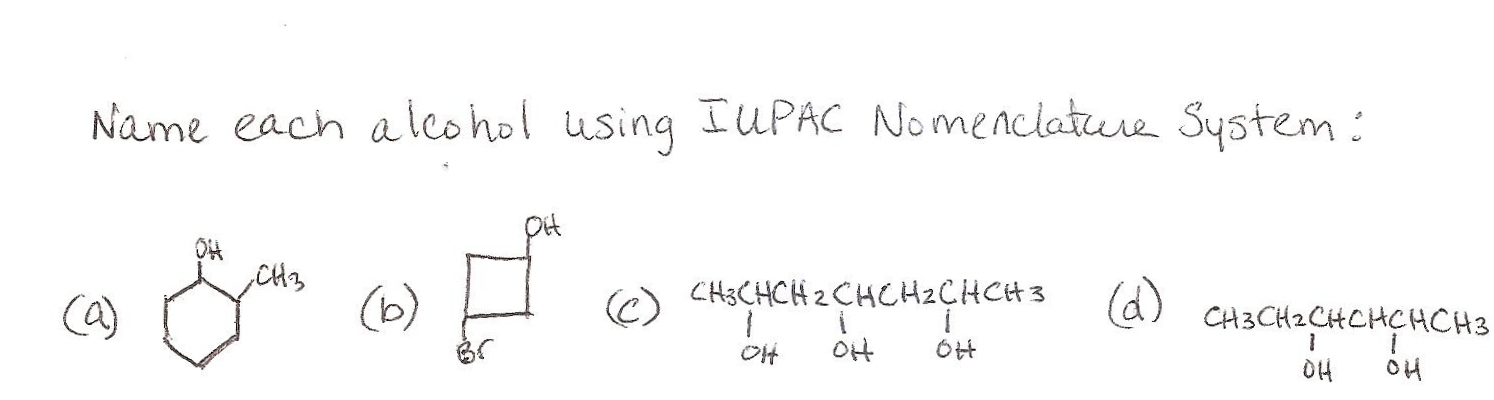 Name each alcohol using IUPAC Nomenclature System:
(a) OH CH3 (b) OH Br (c) CH3CHCH2CHCH2CHCH3 (d) CH3CH2CHCHCHCH3
OH OH OH OH OH